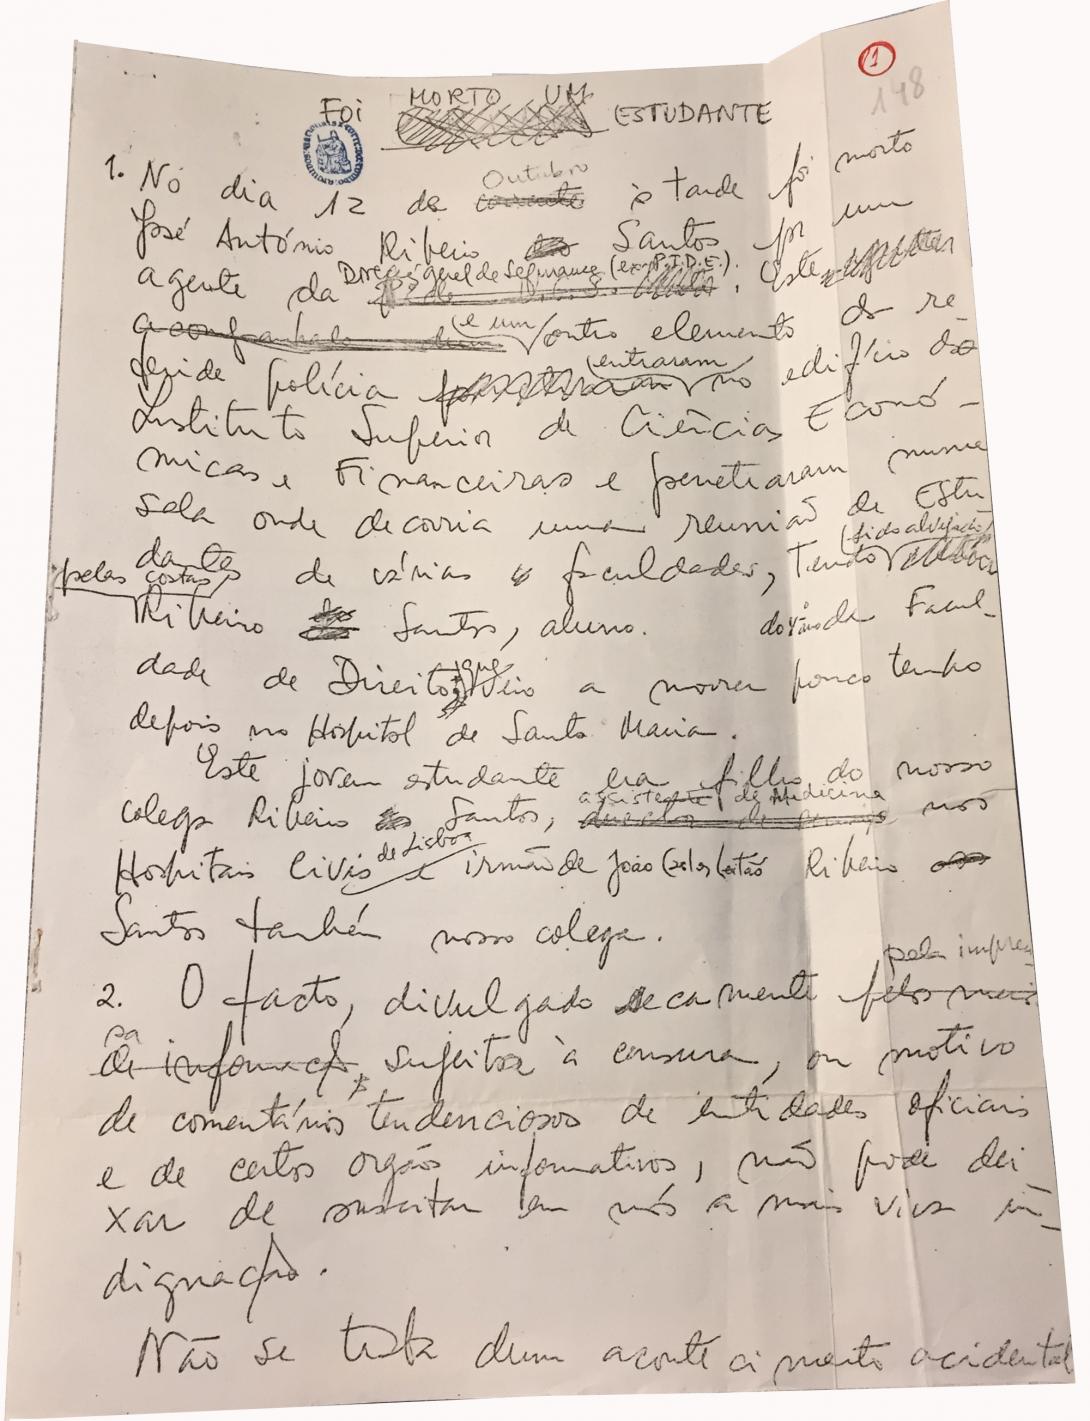 1
148
FOI MORTO UM ESTUDANTE
1. No dia 12 de Outubro à tarde foi morto
José António Ribeiro Santos por um
agente da Direcção Geral de Segurança (ex-P.I.D.E.). Este
e um outro elemento da re-
ferida polícia entraram no edifício do
Instituto Superior de Ciências Econó-
micas e Financeiras e penetraram numa
sala onde decorria uma reunião de Estu
dantes de várias faculdades, tendo sido alvejado
pelas costas,
Ribeiro Santos, aluno. do ano da Facul-
dade de Direito, que veio a morrer pouco tempo
depois no Hospital de Santa Maria.
Este jovem estudante era filho do nosso
colega Ribeiro Santos, assistente de Medicina nos
Hospitais Civis de Lisboa e irmão de João Ribeiro
Santos também nosso colega.
2. O facto, divulgado secamente pela impren
sa sujeita à censura, ou motivo
de comentários tendenciosos de entidades oficiais
e de certos orgãos informativos, não pode dei
xar de suscitar em nós a mais viva in-
dignação.
Não se trata dum acontecimento acidental